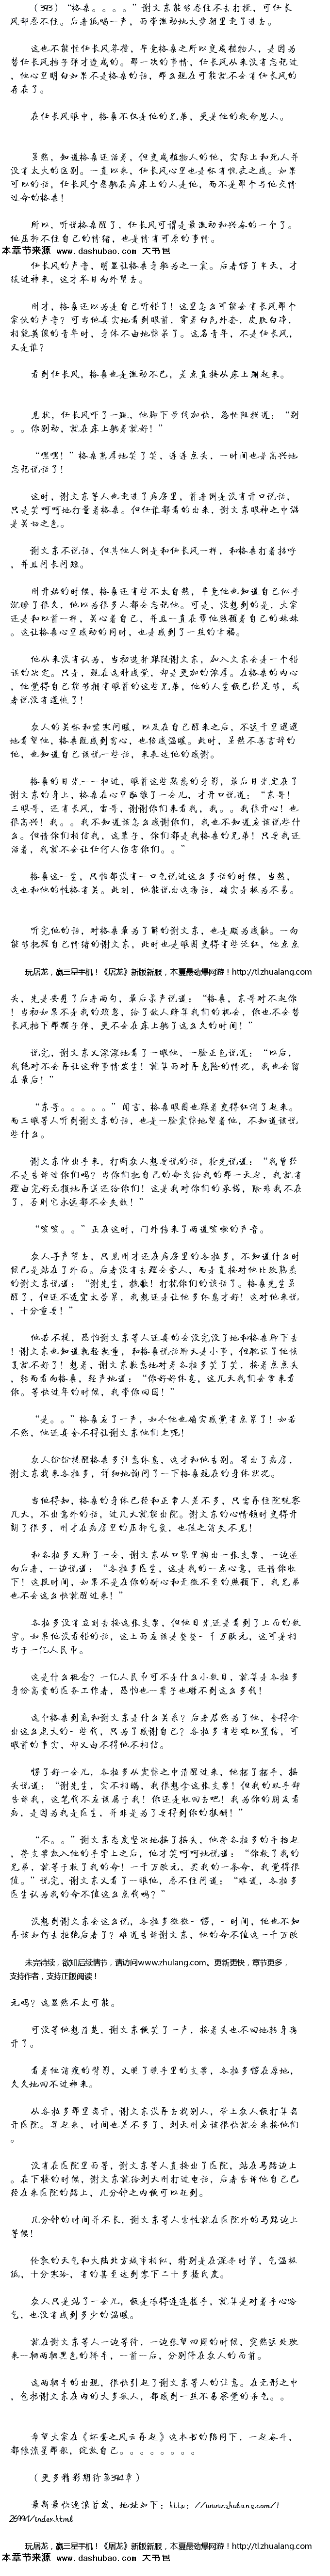 （393）“格桑。。。。”谢文东能够忍住不去打扰，可任长
风却忍不住。后者低喝一声，面带激动地大步朝里走了进去。
这也不能怪任长风莽撞，毕竟格桑之所以变成植物人，是因为
替任长风挡子弹才造成的。那一次的事情，任长风从来没有忘记过
，他心里明白如果不是格桑的话，那么现在可能就不会有任长风的
存在了。
在任长风眼中，格桑不仅是他的兄弟，更是他的救命恩人。
虽然，知道格桑还活着，但变成植物人的他，实际上和死人并
没有太大的区别。一直以来，任长风心里也是怀有愧疚之感。如果
可以的话，任长风宁愿躺在病床上的人是他，而不是那个与他交情
过命的格桑！
所以，听说格桑醒了，任长风可谓是最激动和兴奋的一个了。
他压抑不住自己的情绪，也是情有可原的事情。
本章节来源 www.dashubao.com 大书包
任长风的声音，明显让格桑身躯为之一震。后者愣了半天，才
缓过神来，这才举目向外望去。
刚才，格桑还以为是自己听错了！这里怎么可能会有长风那个
家伙的声音？可当他真实地看到眼前，穿着白色外套，皮肤白净，
相貌英俊的青年时，身体不由地惊呆了。这名青年，不是任长风，
又是谁？
看到任长风，格桑也是激动不已，差点直接从床上蹦起来。
见状，任长风吓了一跳，他脚下步伐加快，急忙阻拦道：“别
。。你别动，就在床上躺着就好！”
“嘿嘿！”格桑憨厚地笑了笑，连连点头，一时间也是高兴地
忘记说话了！
这时，谢文东等人也走进了病房里，前者倒是没有开口说话，
只是笑呵呵地打量着格桑。但任谁都看的出来，谢文东眼神之中满
是关切之色。
谢文东不说话，但其他人倒是和任长风一样，和格桑打着招呼
，并且问长问短。
刚开始的时候，格桑还有些不太自然，毕竟他也知道自己似乎
沉睡了很久，他以为很多人都会忘记他。可是，没想到的是，大家
还是和以前一样，关心着自己，并且一直在帮他照顾着自己的妹妹
。这让格桑心里感动的同时，也是感到了一丝的幸福。
他从来没有认为，当初选择跟随谢文东，加入文东会是一个错
误的决定。只是，现在这种感觉，却是更加的浓厚。在格桑的内心
，他觉得自己能够拥有眼前的这些兄弟，他的人生便已经足够，或
者说没有遗憾了！
众人的关怀和嘘寒问暖，以及在自己醒来之后，不远千里迢迢
地看望他，格桑既感到窝心，也倍感温暖。此时，虽然不善言辞的
他，也知道自己该说一些话，来表达他的感谢。
格桑的目光一一扫过，眼前这些熟悉的身影，最后目光定在了
谢文东的身上，格桑在心里酝酿了一会儿，才开口说道：“东哥！
三眼哥，还有长风，雷哥，谢谢你们来看我，我。。我很开心！也
很高兴！我。。我不知道该怎么感谢你们，我也不知道应该说些什
么。但请你们相信我，这辈子，你们都是我格桑的兄弟！只要我还
活着，我就不会让任何人伤害你们。。”
格桑这一生，只怕都没有一口气说过这么多话的时候，当然，
这也和他的性格有关。此刻，他能说出这番话，确实是极为不易。
听完他的话，对格桑最为了解的谢文东，也是颇为感触。一向
能够把握自己情绪的谢文东，此时也是眼圈变得有些泛红，他点点
玩屠龙，赢三星手机！《屠龙》新版新服，本夏最劲爆网游！http://tlzhualang.com
头，先是安慰了后者两句，最后柔声说道：“格桑，东哥对不起你
！当初如果不是我的疏忽，给了敌人歼害我们的机会，你也不会替
长风挡下那颗子弹，更不会在床上躺了这么久的时间！”
说完，谢文东又深深地看了一眼他，一脸正色说道：“以后，
我绝对不会再让这种事情发生！就算面对再危险的情况，我也会留
在最后！”
“东哥。。。。。”闻言，格桑眼圈也跟着变得红润了起来。
而三眼等人听到谢文东的话，也是一脸震惊地望着他，不知道该说
些什么。
谢文东伸出手来，打断众人想要说的话，抢先说道：“我曾经
不是告诉过你们吗？当你们把自己的命交给我的那一天起，我就有
理由完好无损地再送还给你们！这是我对你们的承诺，除非我不在
了，否则它永远都不会失效！”
“咳咳。。”正在这时，门外传来了两道咳嗽的声音。
众人寻声望去，只见刚才还在病房里的各拉多，不知道什么时
候已是站在了外面。后者没有去理会旁人，而是直接对他比较熟悉
的谢文东说道：“谢先生，抱歉！打扰你们的谈话了。格桑先生虽
醒了，但还不适宜太劳累，我想还是让他多休息才好！这对他来说
，十分重要！”
他若不提，恐怕谢文东等人还真的会没完没了地和格桑聊下去
！谢文东也知道孰轻孰重，和格桑说话聊天是小事，但耽误了他恢
复就不好了！想着，谢文东歉意地对着各拉多笑了笑，接着点点头
，转而看向格桑，轻声地道：“你好好休息，这几天我们会常来看
你。等快过年的时候，我带你回国！”
“是。。”格桑应了一声，如今他也确实感觉有点累了！如若
不然，他还真舍不得让谢文东他们走呢！
众人纷纷提醒格桑多注意休息，这才和他告别。等出了病房，
谢文东找来各拉多，详细地询问了一下格桑现在的身体状况。
当他得知，格桑的身体已经和正常人差不多，只需再住院观察
几天，不出意外的话，过几天就能出院。谢文东的心情顿时变得开
朗了很多，刚才在病房里的压抑气氛，也随之消失不见！
和各拉多又聊了一会，谢文东从口袋里掏出一张支票，一边递
向后者，一边说道：“各拉多医生，这是我的一点心意，还请你收
下！这段时间，如果不是在你的耐心和无微不至的照顾下，我兄弟
也不会这么快就醒过来！”
各拉多没有立刻去接这张支票，但他目光还是看到了上面的数
字。如果他没看错的话，这上面应该是整整一千万欧元，这可是相
当于一亿人民币。
这是什么概念？一亿人民币可不是什么小数目，就算是各拉多
身份高贵的医务工作者，恐怕也一辈子也赚不到这么多钱！
这个格桑到底和谢文东是什么关系？后者居然为了他，舍得拿
出这么庞大的一些钱，只为了感谢自己？各拉多有些难以置信，可
眼前的事实，却又由不得他不相信。
愣了好一会儿，各拉多从震惊之中清醒过来，他摆了摆手，摇
头说道：“谢先生，实不相瞒，我很想拿这张支票！但我的双手却
告诉我，这笔钱不应该属于我！你还是收回去吧！我为你的朋友看
病，是因为我是医生，并非是为了要得到你的报酬！”
“不。。”谢文东态度坚决地摇了摇头，他将各拉多的手抬起
，将支票放入他的手掌上之后，他才笑呵呵地说道：“你救了我的
兄弟，就等于救了我的命！一千万欧元，买我的一条命，我觉得很
值。”说完，谢文东又看了一眼他，忍不住问道：“难道，各拉多
医生认为我的命不值这么点钱吗？”
没想到谢文东会这么说，各拉多微微一愣，一时间，他也不知
再该如何去拒绝后者了？难道告诉谢文东，他的命不值这一千万欧
未完待续，欲知后续情节，请访问www.zhulang.com。更新更快，章节更多，
支持作者，支持正版阅读！
元吗？这显然不太可能。
可没等他想清楚，谢文东轻笑了一声，接着头也不回地转身离
开了。
看着他消瘦的背影，又瞅了瞅手里的支票，各拉多愣在原地，
久久地回不过神来。
从各拉多那里离开，谢文东没再去找别人，带上众人便打算离
开医院。算起来，时间也差不多了，刘天州应该很快就会来接他们
。
没有在医院里面等，谢文东等人直接出了医院，站在马路边上
。在下楼的时候，谢文东就给刘天州打过电话，后者告诉他自己已
经在来医院的路上，几分钟之内便可以赶到。
几分钟的时间并不长，谢文东等人索性就在医院外的马路边上
等候！
伦敦的天气和大陆北方城市相似，特别是在深冬时节，气温极
低，十分寒冷，有的甚至达到零下二十多摄氏度。
众人只是站了一会儿，便是冻得连连搓手，就算是对着手心哈
气，也没有感到多少的温暖。
就在谢文东等人一边等待，一边张望四周的时候，突然远处驶
来一辆两辆黑色的轿车，一前一后，分别停在众人的面前。
这两辆车的出现，很快引起了谢文东等人的注意。在无形之中
，包括谢文东在内的大多数人，都感到一丝不易察觉的杀气。。
希望大家在《坏蛋之风云再起》这本书的陪同下，一起奋斗，
都像流星那般，绽放自己。。。。。。。。
（更多精彩期待第394章）
最新最快逐浪首发，地址如下：http：//www.zhulang.com/1
26994/index.html
玩屠龙，赢三星手机！《屠龙》新版新服，本夏最劲爆网游！http://tlzhualang.com
本章节来源 www.dashubao.com 大书包